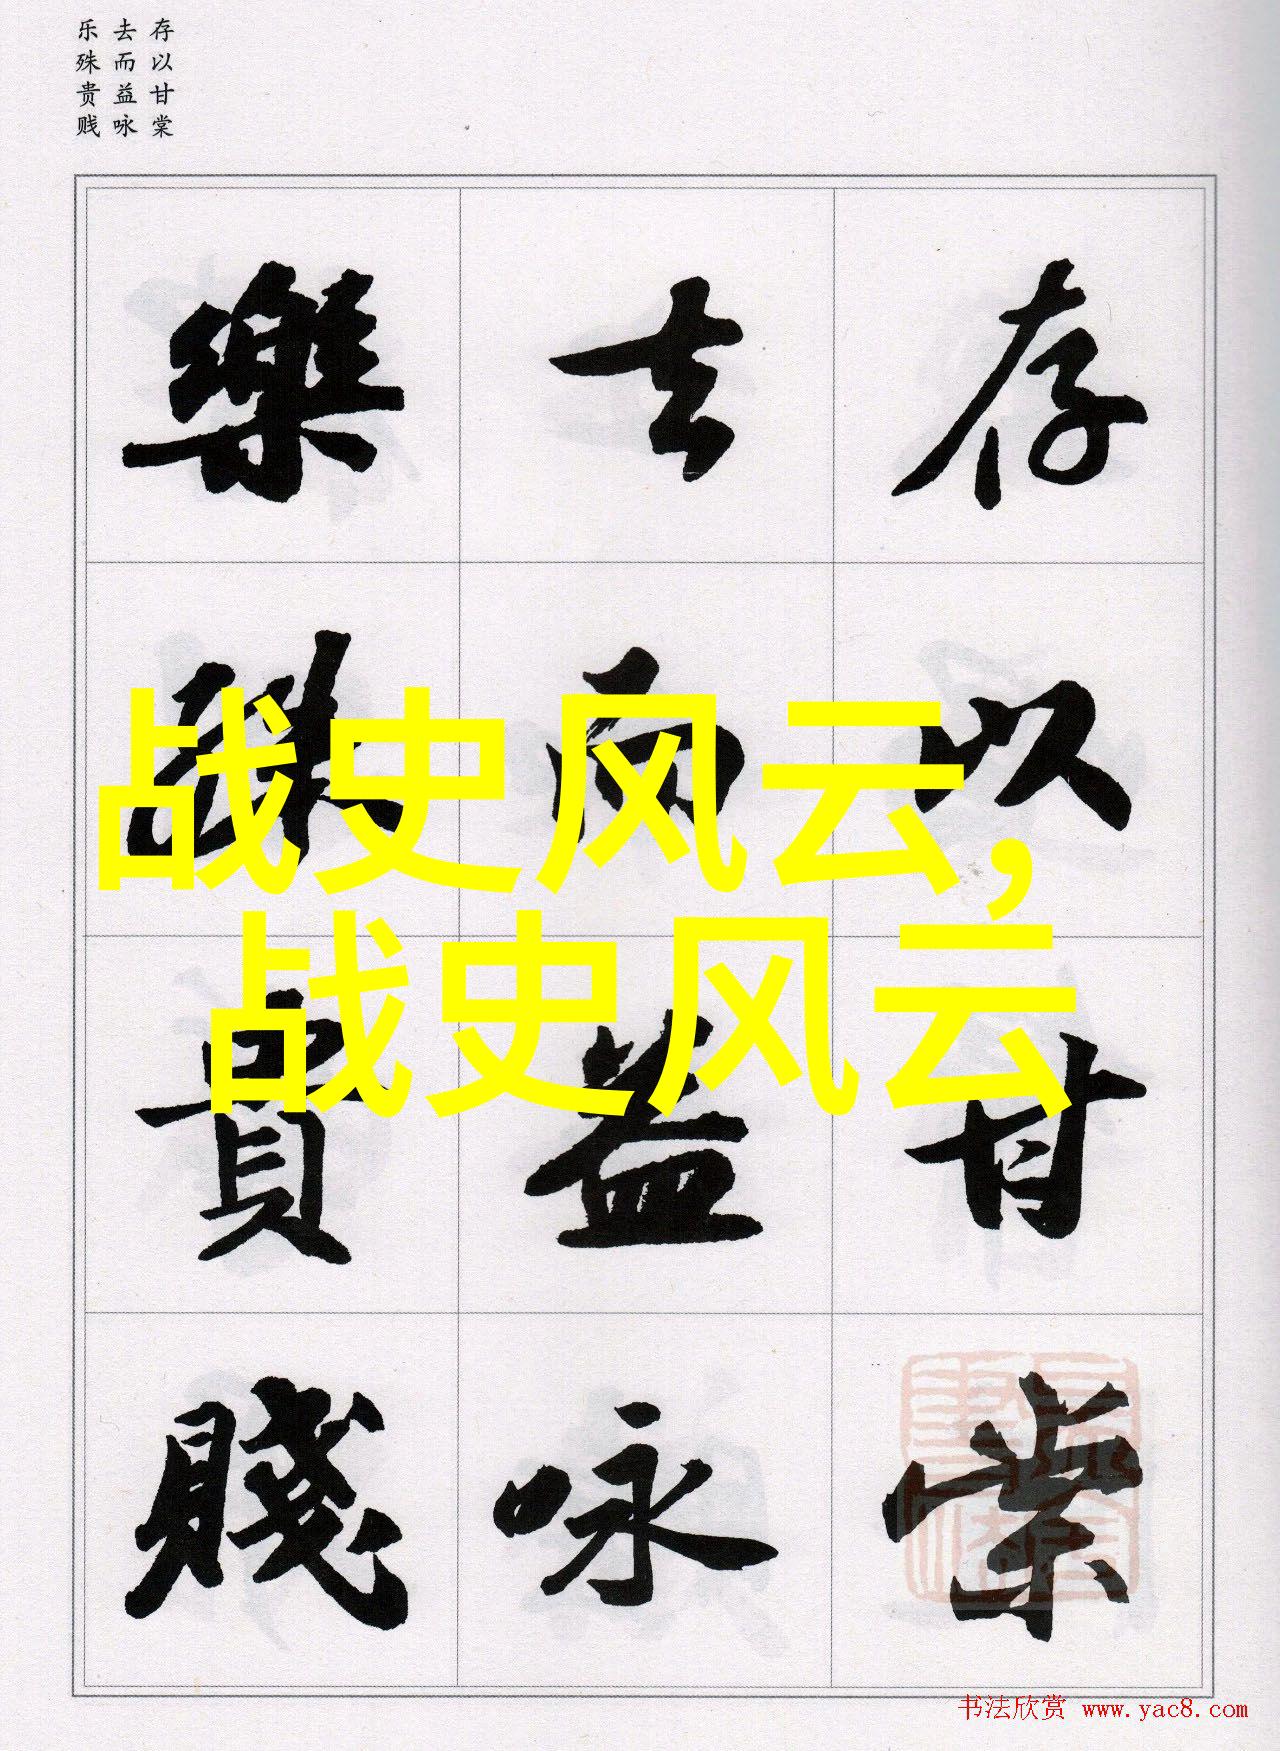 存以甘棠
去而益咏
乐殊贵贱
存以甘棠
去而益咏
樂殊貴賤
战史风云,
战史风云
书法欣赏 www.yac8.com